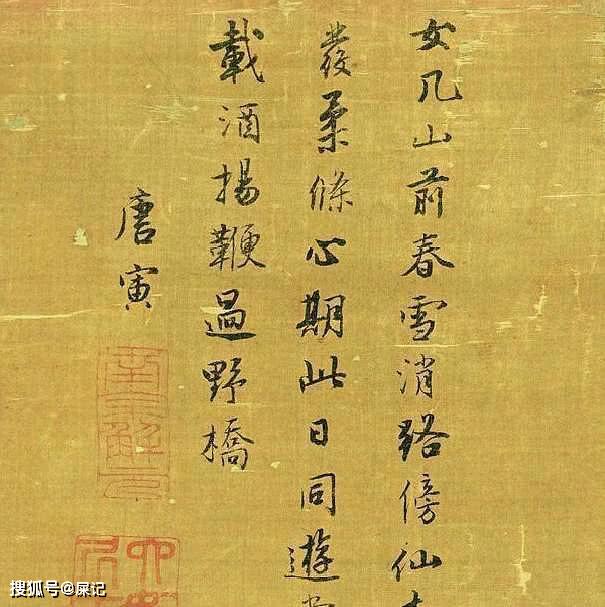 女几山前春雪消路傍仙
發柔條心期此日同遊
載酒揚鞭過野橋
唐寅
南京解元
搜狐号@屎记